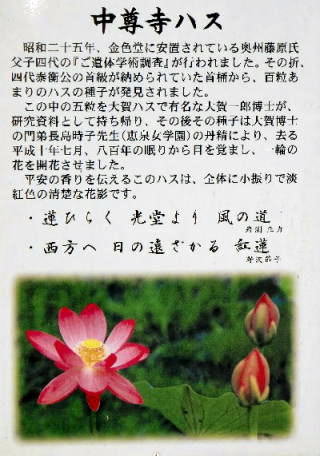 中尊寺ハス
昭和二十五年、金色堂に安置されている奥州藤原氏
父子四代の『ご遺体学術調査』が行われました。その折、
四代泰衡公の首級が納められていた首桶から、百粒あ
まりのハスの種子が発見されました。
この中の五粒を大賀ハスで有名な大賀一郎博士が、
研究資料として持ち帰り、その後その種子は大賀博士
の門弟長島時子先生（恵泉女学園）の丹精により、去る
平成十年七月、八百年の眠りから目を覚まし、一輪の
花を開花させました。
平安の香りを伝えるこのハスは、全体に小振りで淡
紅色の清楚な花影です。
・蓮ひらく 光堂より 風の道
・西方へ 日の遠ざかる 紅蓮